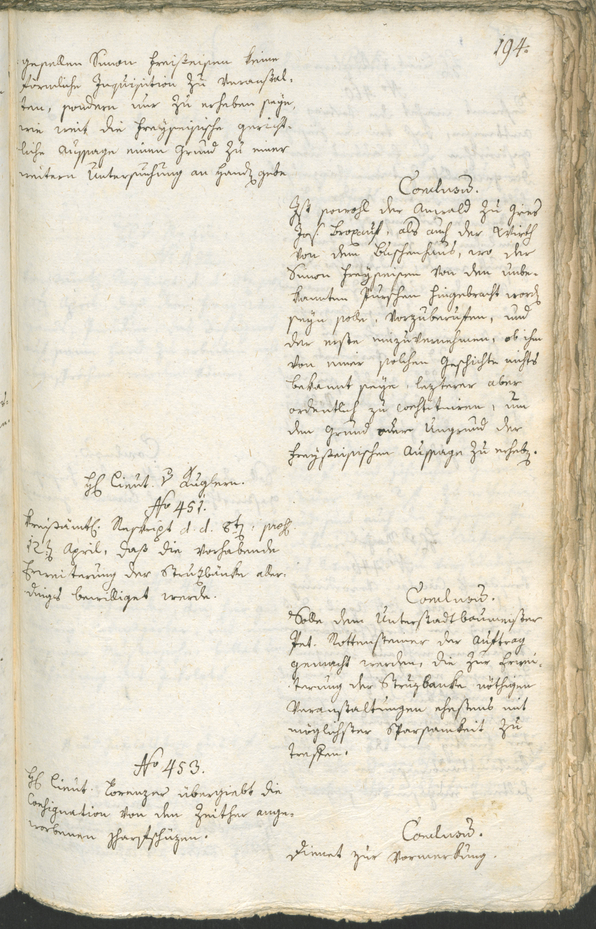 194.
gesellen Simon Freiseisen keine
förmliche Inquisition zu veranstal-
ten, sondern nur zu erheben seye,
wie weit die Freyseisische gericht-
liche Aussage einen Grund zu einer
weitern Untersuchung an Handt gebe
Conclusum.
Ist sowohl der Anwald zu Gries
Jos:, als auch der Wirth
von dem Buschenhaus, wo der
Simon Freyseisen von den unbe-
kannten Purschen hingebracht word
seyn solle, vorzuberuffen, und
der erste einzuvernehmen, ob ihm
von einer solchen Geschichte nichts
bekannt seye, lezterer aber
ordentlich zu constituiren, um
den Grund oder Ungrund der
Freyseisischen Aussage zu erheb.
H Lieut. v Auglern.
No 451.
Kreisamtl. Reskript d. d. 8t, pros
12t April, daß die vorhabende
Erweiterung der Strutzbänke aller-
dings bewilliget werde.
Conclusum.
Solle dem Unterstadtbaumeister
Pet. Nottensteiner der Auftrag
gemacht werden, die zur Erwei-
terung der Strutzbanke nöthigen
Veranstaltungen ehestens mit
möglichster Sparsamkeit zu
treffen.
No 453.
H Lieut. Lorenzer übergiebt die
Consignation von den Zeither ange-
worbenen Scharfschüzen.
Conclusum.
Dienet zur Vormerkung.